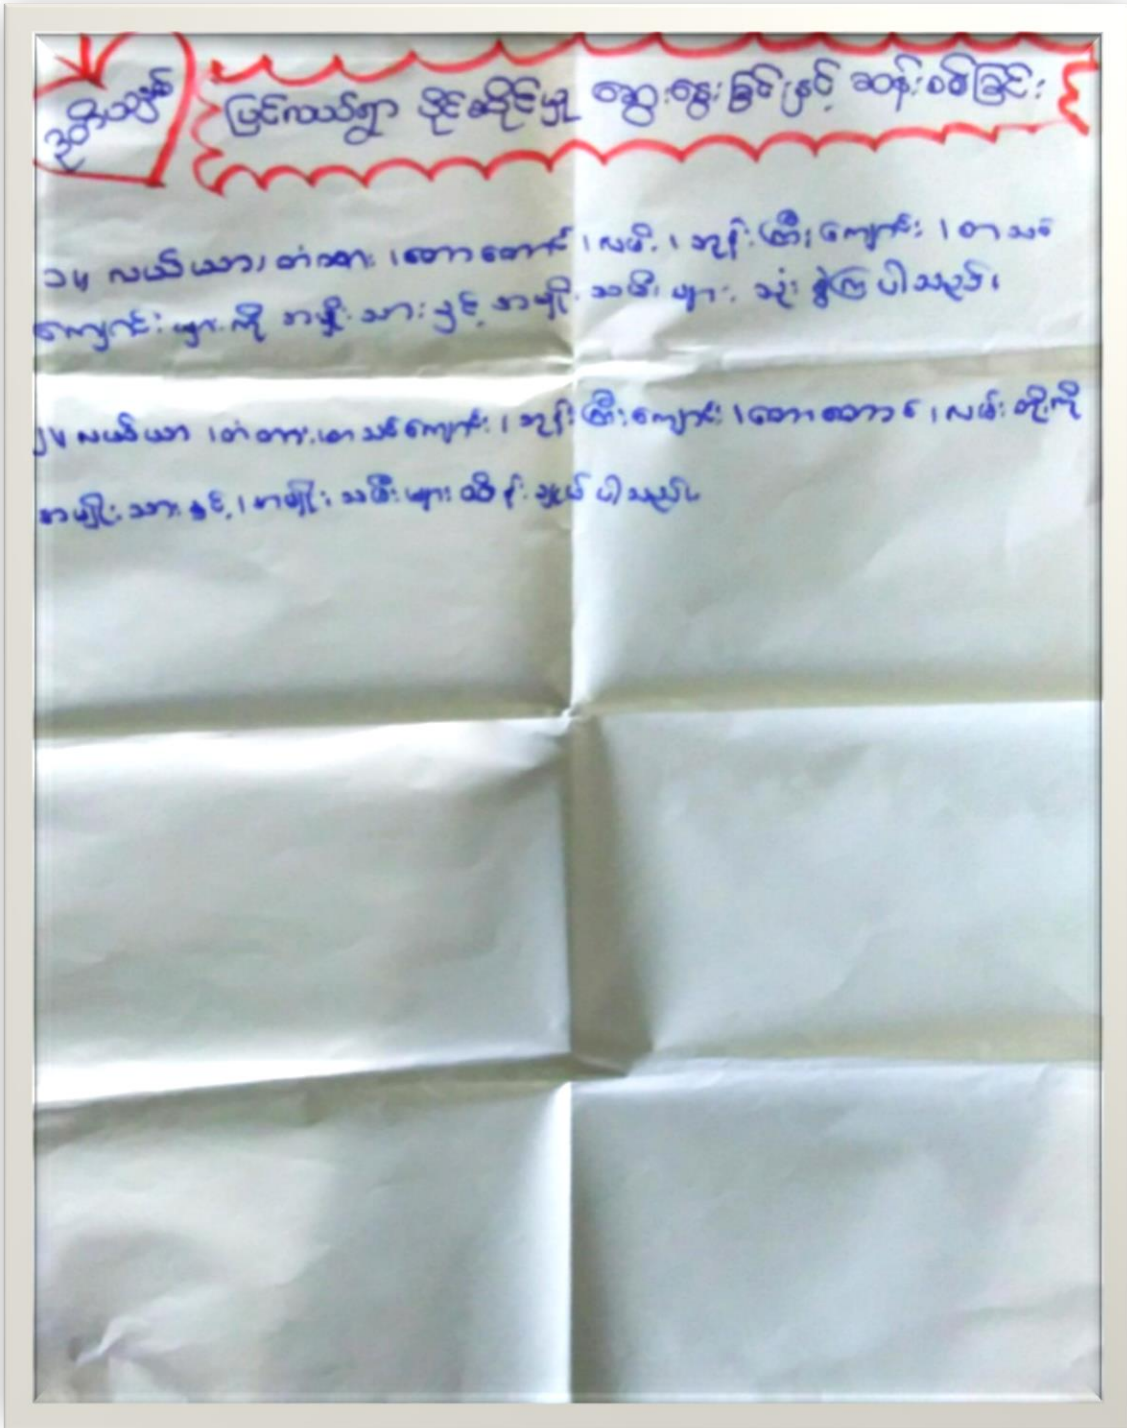 ဒုတိယနှစ်
ပြင်ကယ်ရွာ ပိုင်ဆိုင်မှု ဆွေးနွေးခြင်းနှင့် ဆန်းစစ်ခြင်း
၁။ လယ်ယာ၊ တံတား၊ တောတောင်၊ လမ်း၊ ဘုန်းကြီးကျောင်း၊ စာသင်
ကျောင်းများကို အမျိုးသားနှင့် အမျိုးသမီးများ သုံးစွဲကြပါသည်။
၂။ လယ်ယာ၊ တံတား၊ စာသင်ကျောင်း၊ ဘုန်းကြီးကျောင်း၊ တောတောင်၊ လမ်းတို့ကို
အမျိုးသားနှင့်၊ အမျိုးသမီးများ ထိန်းချုပ်ပါသည်။